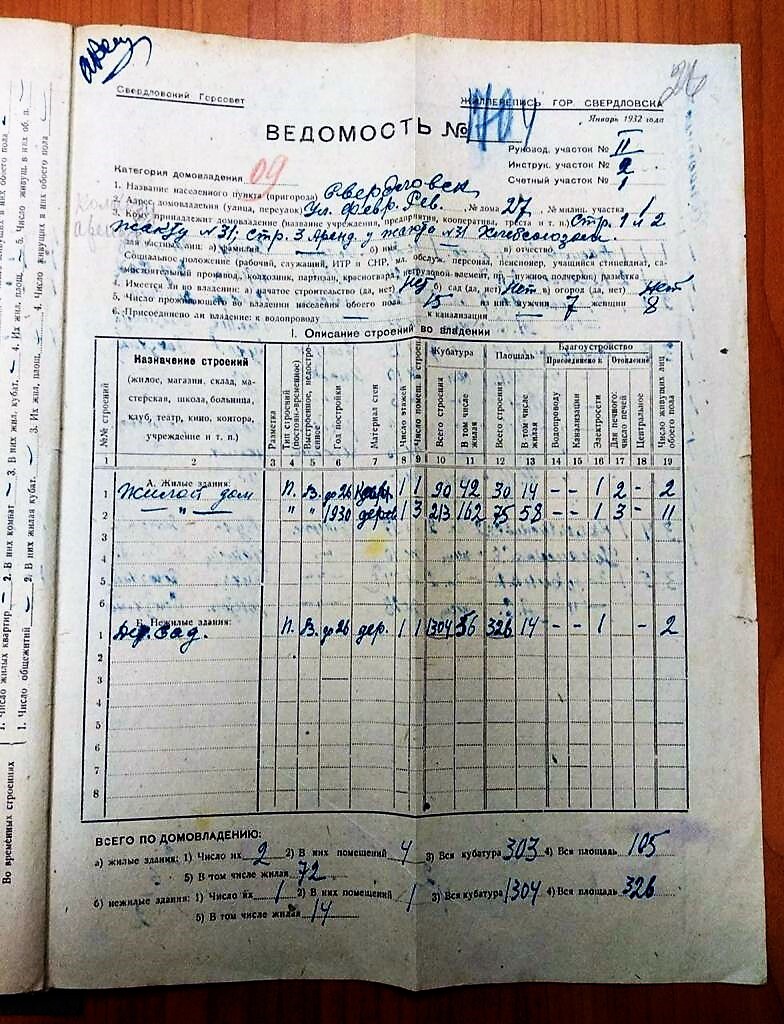 26
Свердловский Горсовет
ЖИЛПЕРЕПИСЬ ГОР. СВЕРДЛОВСКА
Январь 1932 года
ВЕДОМОСТЬ №
Руковод. участок № II
Инструк. участок № 2
Счетный участок № 1
Категория домовладения 09
1. Название населенного пункта (пригорода) Свердловск
2. Адрес домовладения (улица, переулок) Ул. Февр. Рев. № дома 27, № милиц. участка 1
3. Кому принадлежит домовладение (название учреждения, предприятия, кооператива, треста и т. п.) Стр. 1 и 2
Жакту № 31. Стр. 3 Аренд. у жакта № 31
для частных лиц: а) фамилия б) имя в) отчество
Социальное положение (рабочий, служащий, ИТР и СНР, мл. обслуж. персонал, пенсионер, учащийся стипендиат, са-
мостоятельный производ., колхозник, партизан, красногвард., нетрудовой элемент, пр. нужное подчеркн.) разметка
4. Имеется ли во владении: а) начатое строительство (да, нет) Нет б) сад (да, нет) Нет в) огород (да, нет) Нет
5. Число проживающего во владении населения обоего пола 15 из них мужчин 7 женщин 8
6. Присоединено ли владение: к водопроводу — к канализации —
I. Описание строений во владении
№№ строений
Назначение строений
(жилое, магазин, склад, ма-
стерская, школа, больница,
клуб, театр, кино, контора,
учреждение и т. п.)
Разметка
Тип строений (постоян.-временное)
Выстроенное, недостроенное
Год постройки
Материал стен
Число этажей
Число помещ. в строен.
Кубатура
Всего строения
В том числе жилая
Площадь
Всего строения
В том числе жилая
Благоустройство
Присоединено к
Водопроводу
Канализации
Электросети
Отопление
Для печного: число печей
Центральное
Число живущих лиц обоего пола
1 2 3 4 5 6 7 8 9 10 11 12 13 14 15 16 17 18 19
А. Жилые здания:
1 Жилой дом П. В. до 26 1 1 90 42 30 14 – – 1 2 – 2
2 — " — " " 1930 дерев 1 3 213 162 75 58 – – 1 3 – 11
3
4
5
6
Б. Нежилые здания:
1 П. В. до 26 дер. 1 1 1304 56 326 14 – – 1 – 2
2
3
4
5
6
7
8
ВСЕГО ПО ДОМОВЛАДЕНИЮ:
а) жилые здания: 1) Число их 2 2) В них помещений 4 3) Вся кубатура 303 4) Вся площадь 105
5) В том числе жилая 72
б) нежилые здания: 1) Число их 1 2) В них помещений 1 3) Вся кубатура 1304 4) Вся площадь 326
5) В том числе жилая 14
1. Число жилых квартир — 2. В них комнат — 3. В них жил. кубат. — 4. Их жил. площ. — 5. Число живущ. в них об. п.
1. Число общежитий — 2. В них жилая кубат. — 3. Их жил. площ. — 4. Число живущих в них обоего пола
Во временных строениях